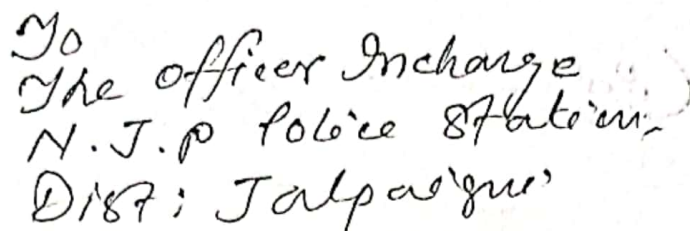 To
The officer Incharge
N.J.P Police Station
Dist: Jalpaiguri